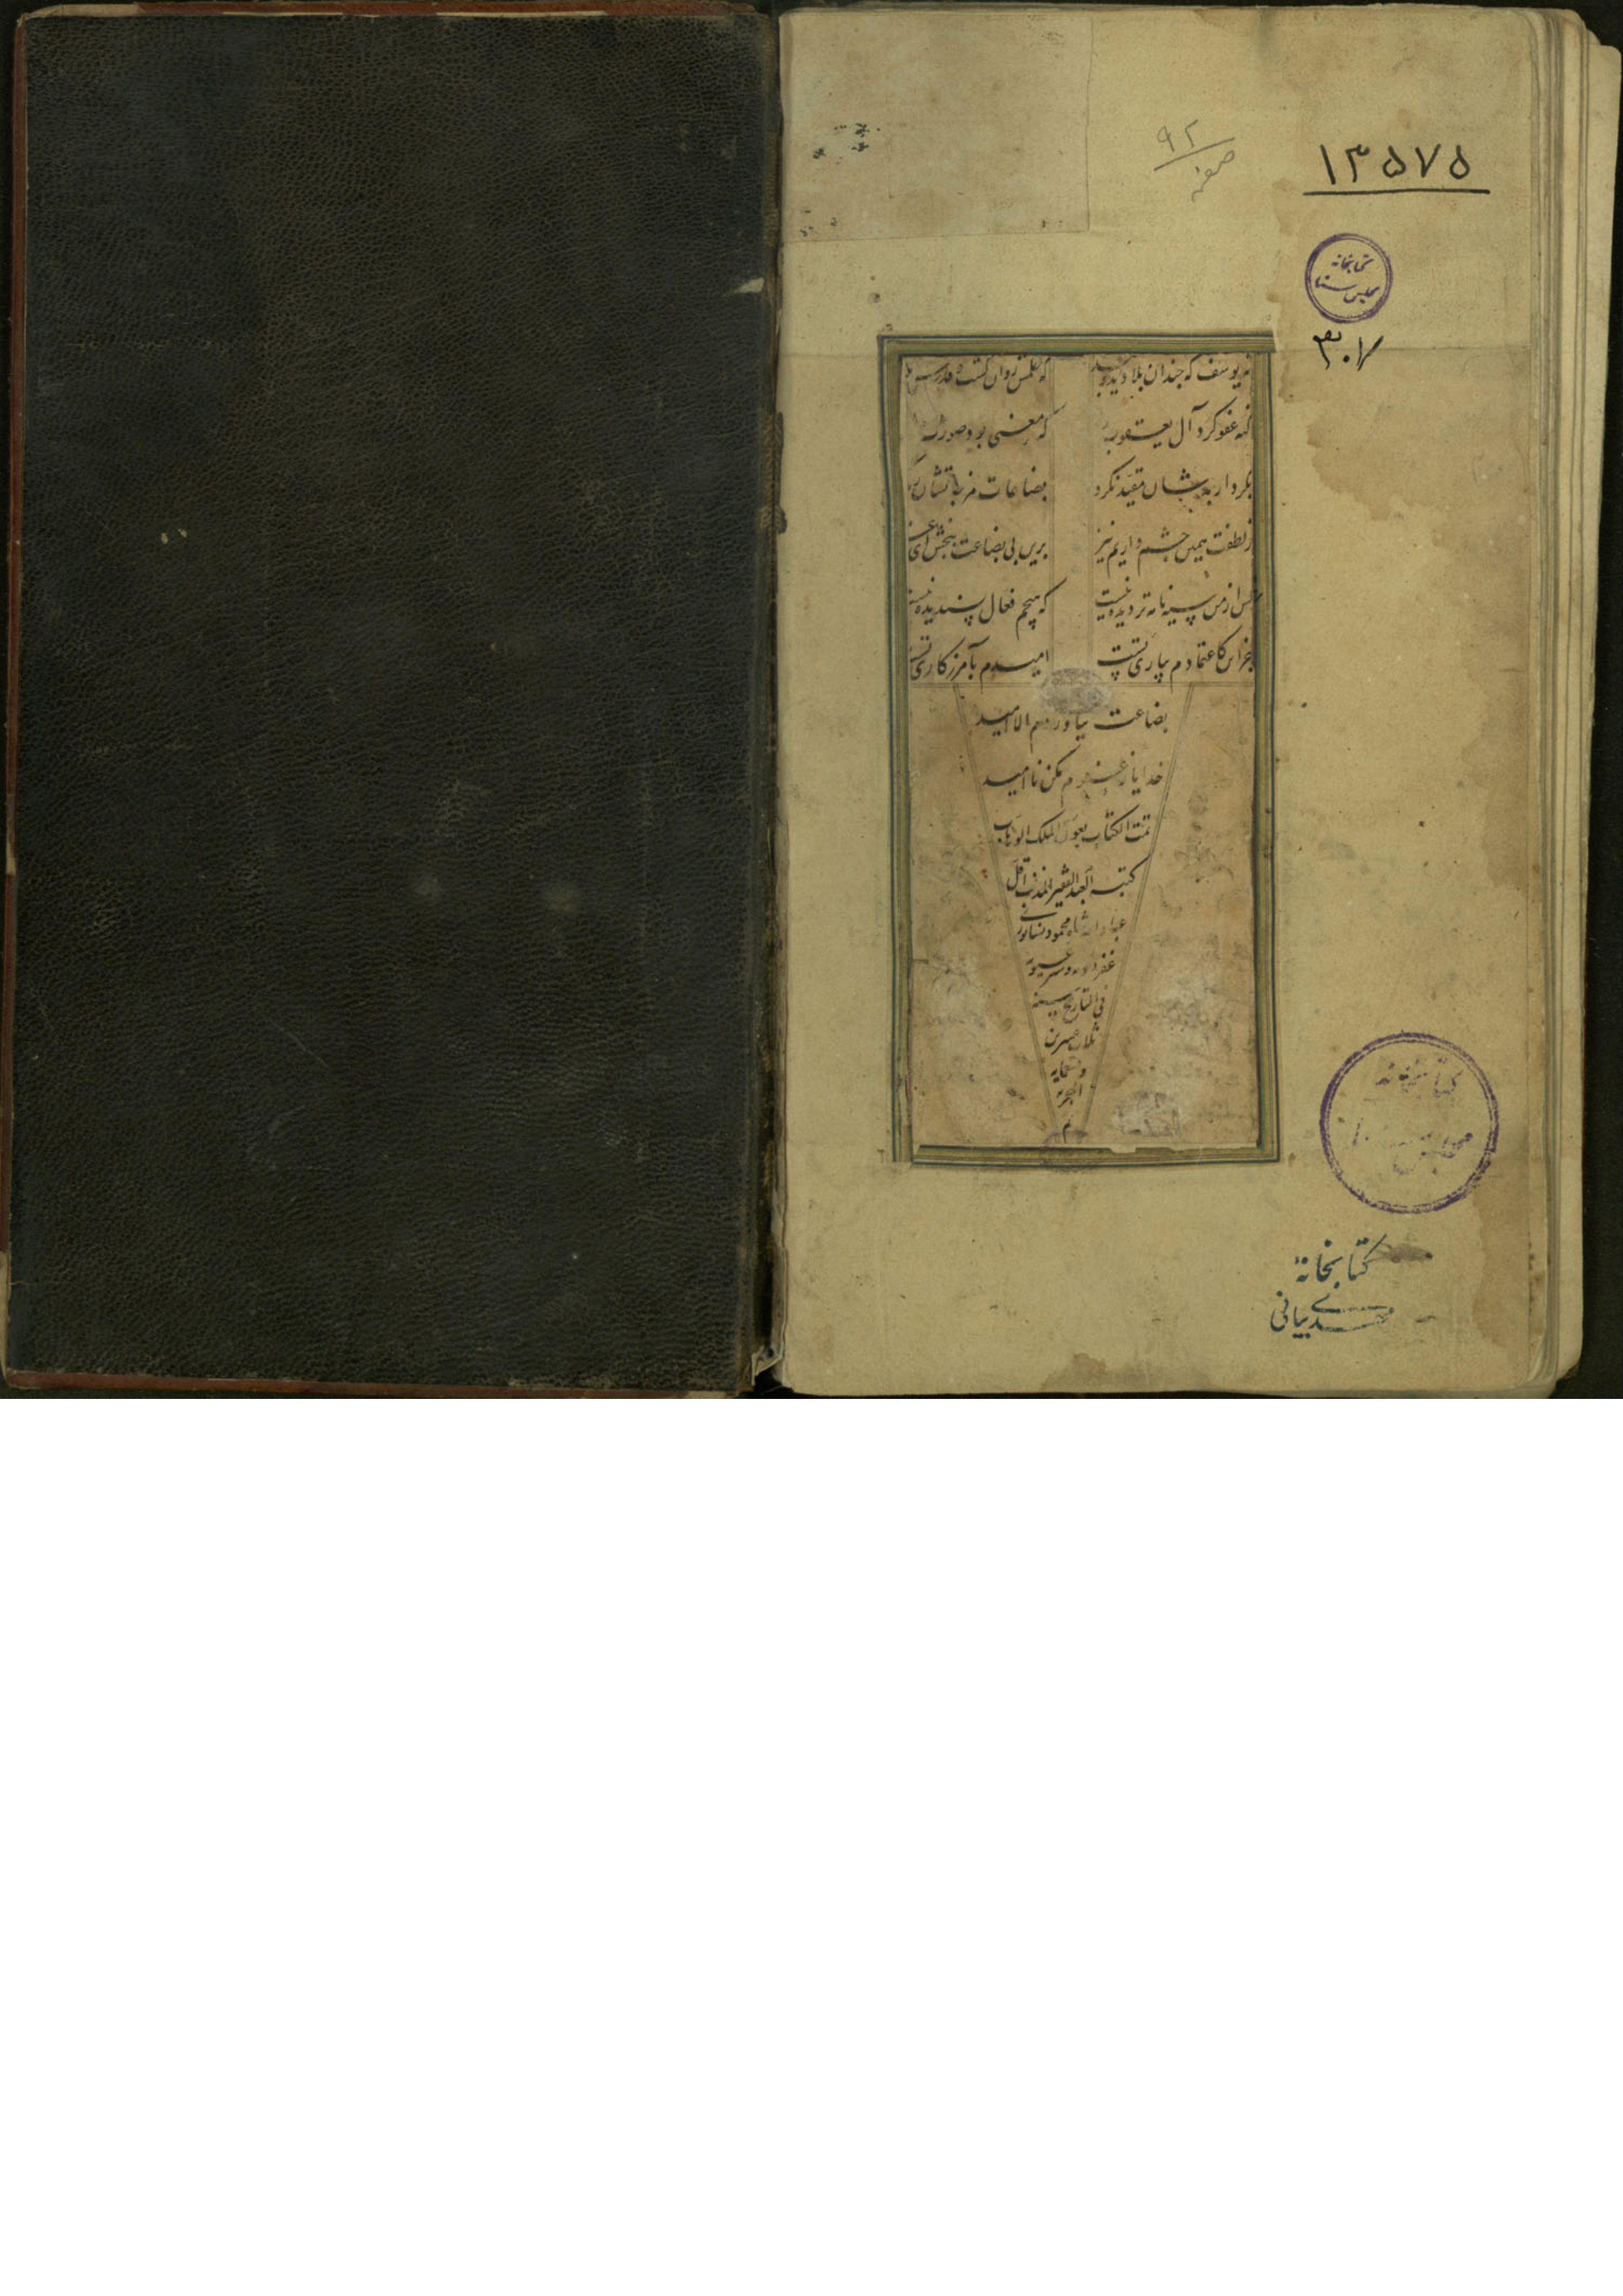 ۹۲
صفحه
۱۳۵۷۵
کتابخانه
مجلس سنا
۳۰۷
نه یوسف که چندان بلا دید و بند که حکمش روان گشت و قدرش بلند
گنه عفو کرد آل یعقوب را که معنی بود صورت
بکردار بدشان مقید نکرد بضاعات مزجاتشان رد
ز لطفت همین چشم داریم نیز برین بی بضاعت ببخش ای عزیز
کس از من سیه نامه تر دیده نیست که هیچم فعال پسندیده نیست
جز این کاعتمادم بیاری تست امیدم بآمرزکاری تست
بضاعت نیاوردم الا امید
خدایا ز عفوم مکن ناامید
تمت الکتاب بعون الملک الوهاب
کتبه العبد الفقیر المذنب اقل
عباد الله شاه محمود نیشابوری
غفر ذنوبه و ستر عیوبه
فی التاریخ سنه
ثلاث عشرین
و تسعمایه
الهجریه
م
کتابخانه
مجلس سنا
کتابخانهٔ
مهدی بیانی